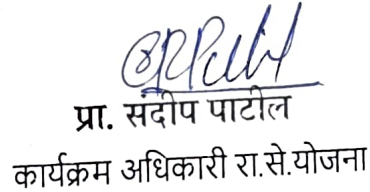 प्रा. संदीप पाटील
कार्यक्रम अधिकारी रा.से.योजना